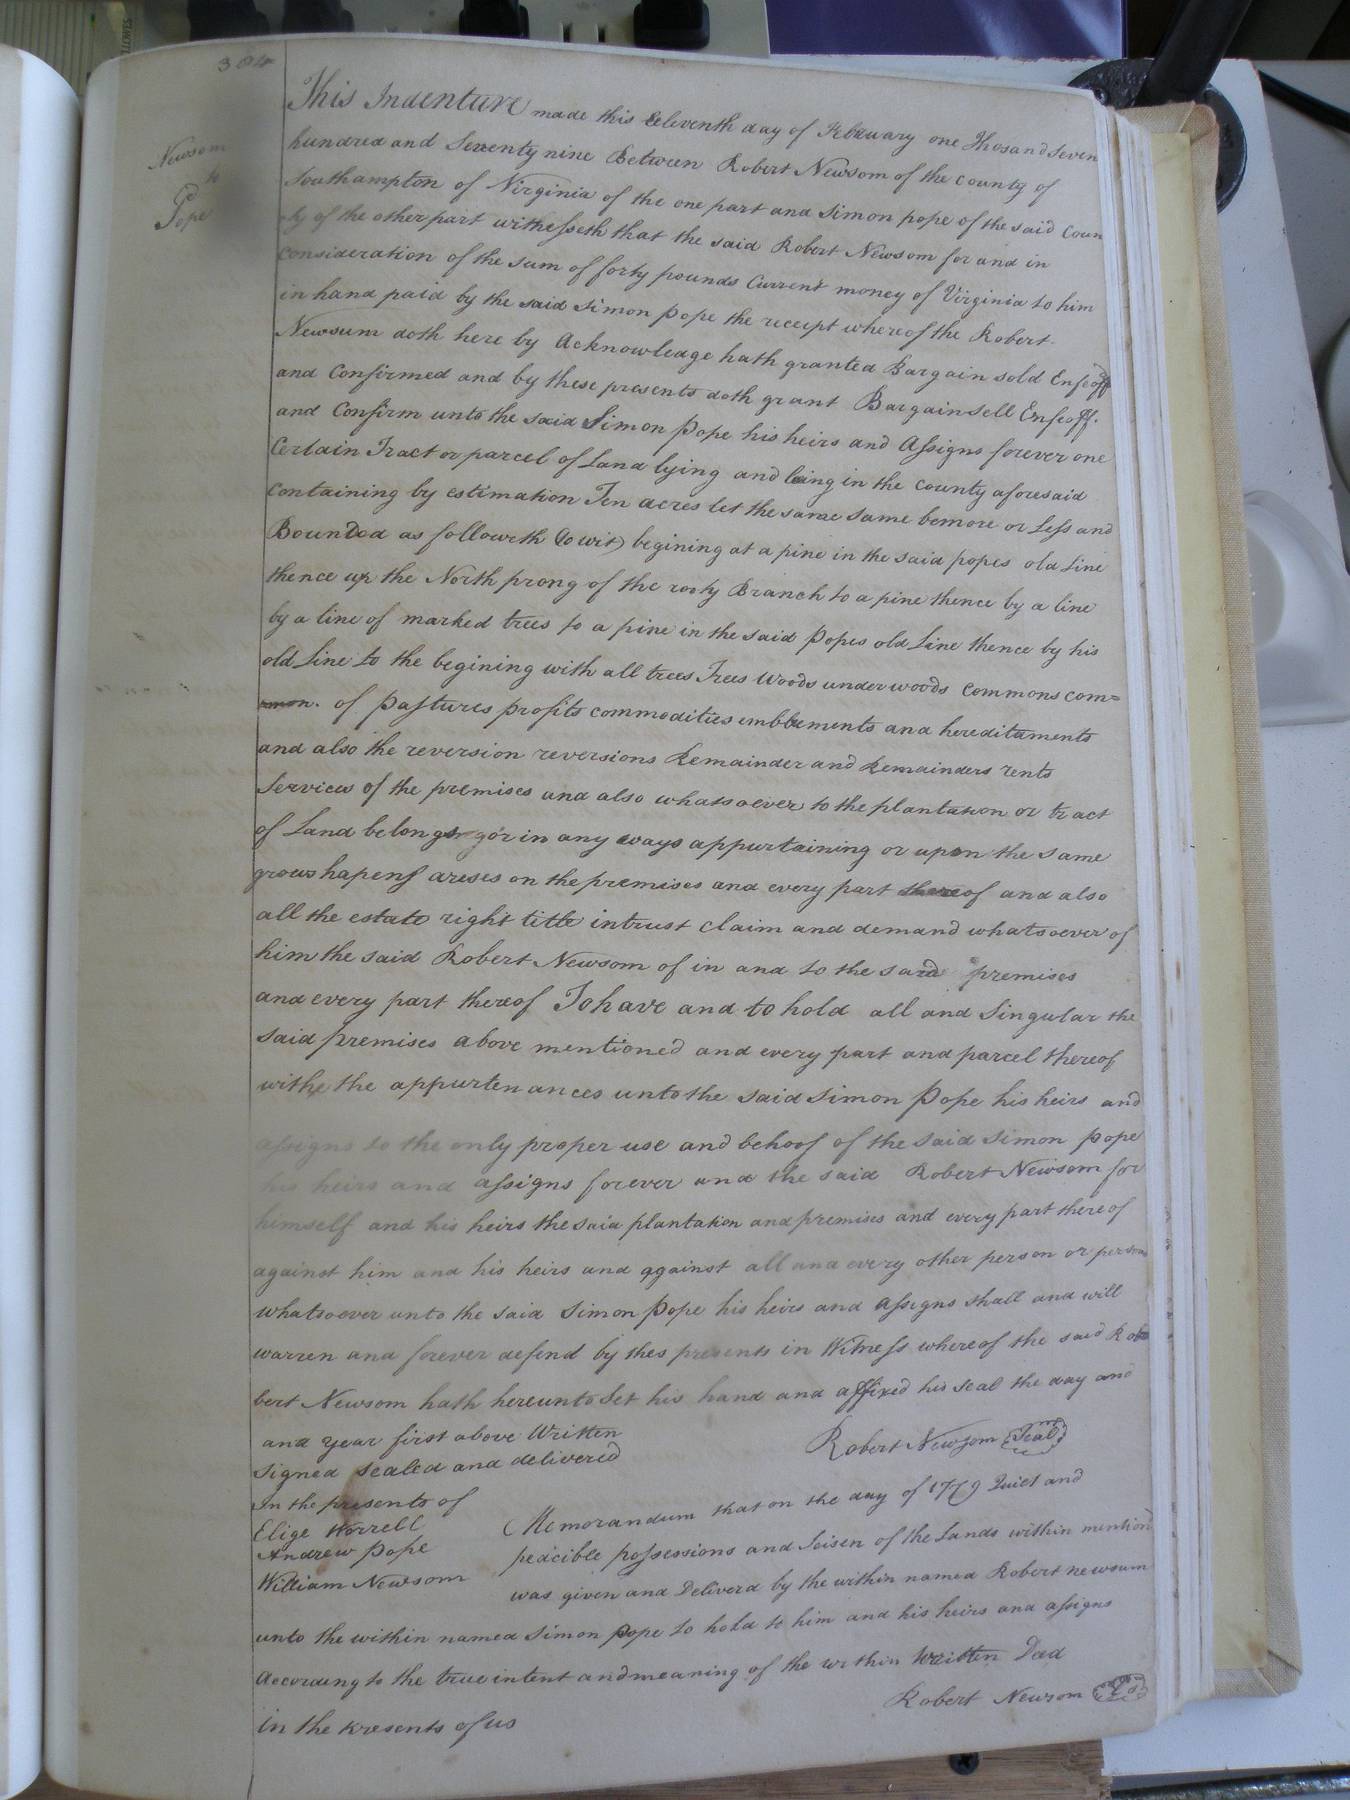 304
Newsom
to
Pope
This Indenture made this Eeleventh day of February one Thosand Seven
hundred and Seventy nine Between Robert Newsom of the county of
Southampton of Virginia of the one part and Simon pope of the said Coun
ty of the other part witnesseth that the said Robert Newsom for and in
Consideration of the sum of forty pounds Current money of Virginia to him
in hand paid by the said Simon Pope the receipt whereof the Robert
Newsum doth here by Acknowledge hath granted Bargain sold Enfeoff
and Confirmed and by these presents doth grant Bargain sell Enfeoff
and Confirm unto the said Simon Pope his heirs and Assigns forever one
Certain Tract or parcel of Land lying and being in the county aforesaid
containing by estimation Ten acres let the same same bemore or Less and
Bounded as followeth (to wit) begining at a pine in the said popes old Line
thence up the North prong of the rooty Branch to a pine thence by a line
by a line of marked trees to a pine in the said Popes old Line thence by his
old Line to the begining with all trees Trees Woods underwoods Commons com=
mon. of Pastures profits commodities emblements and hereditaments
and also the reversion reversions Remainder and Remainders rents
Services of the premises and also whatsoever to the plantation or tract
of Land belong or in any ways appurtaining or upon the same
grows hapens areses on the premises and every part thereof and also
all the estate right title intrust claim and demand whatsoever of
him the said Robert Newsom of in and to the said premises
and every part thereof To have and to hold all and Singular the
said premises above mentioned and every part and parcel thereof
withe the appurtenances unto the said Simon Pope his heirs and
assigns to the only proper use and behoof of the said Simon Pope
his heirs and assigns forever and the said Robert Newsom for
himself and his heirs the said plantation and premises and every part there of
against him and his heirs and against all and every other person or persons
whatsoever unto the said Simon Pope his heirs and Assigns shall and will
warren and forever defend by thes presents in Witness whereof the said Ro
bert Newsom hath hereunto Set his hand and affixed his Seal the day and
and year first above Written
Robert Newsom Seal
Signed sealed and delivered
In the presents of
Elige Worrell
Andrew Pope
William Newsom
Memorandum that on the day of 1779 Quiet and
peacible possessions and Seisen of the Lands within mention
was given and Deliverd by the within named Robert newsum
unto the within named Simon Pope to hold to him and his heirs and assigns
According to the true intent and meaning of the within Written Deed
Robert Newsom
in the presents of us